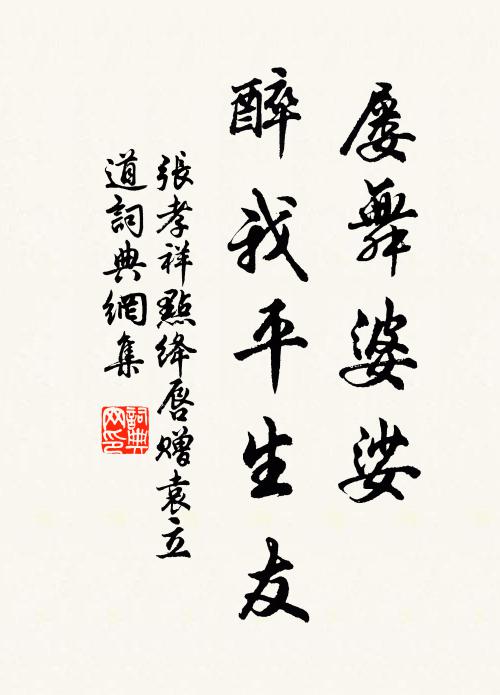 屢舞婆娑
醉我平生友
張孝祥點绛唇贈袁立
道詞典網集
詞典
网印